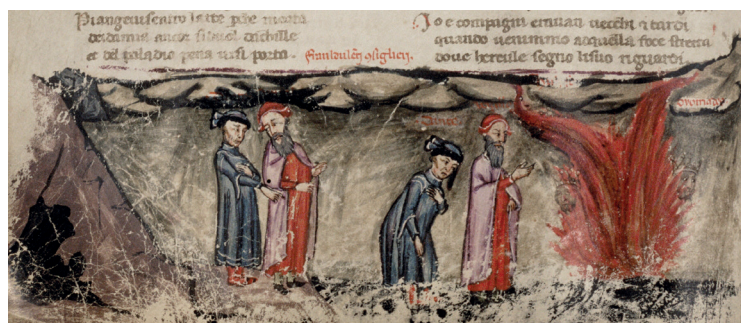 Piangeuisentro larte pche morta
deidamia ancor siduol dachille
et del paladio pena uisi porta.
Jo e compagni erauam uecchi e tardi
quando uenimmo acquella foce stretta
doue hercule segno lisuo riguardi.